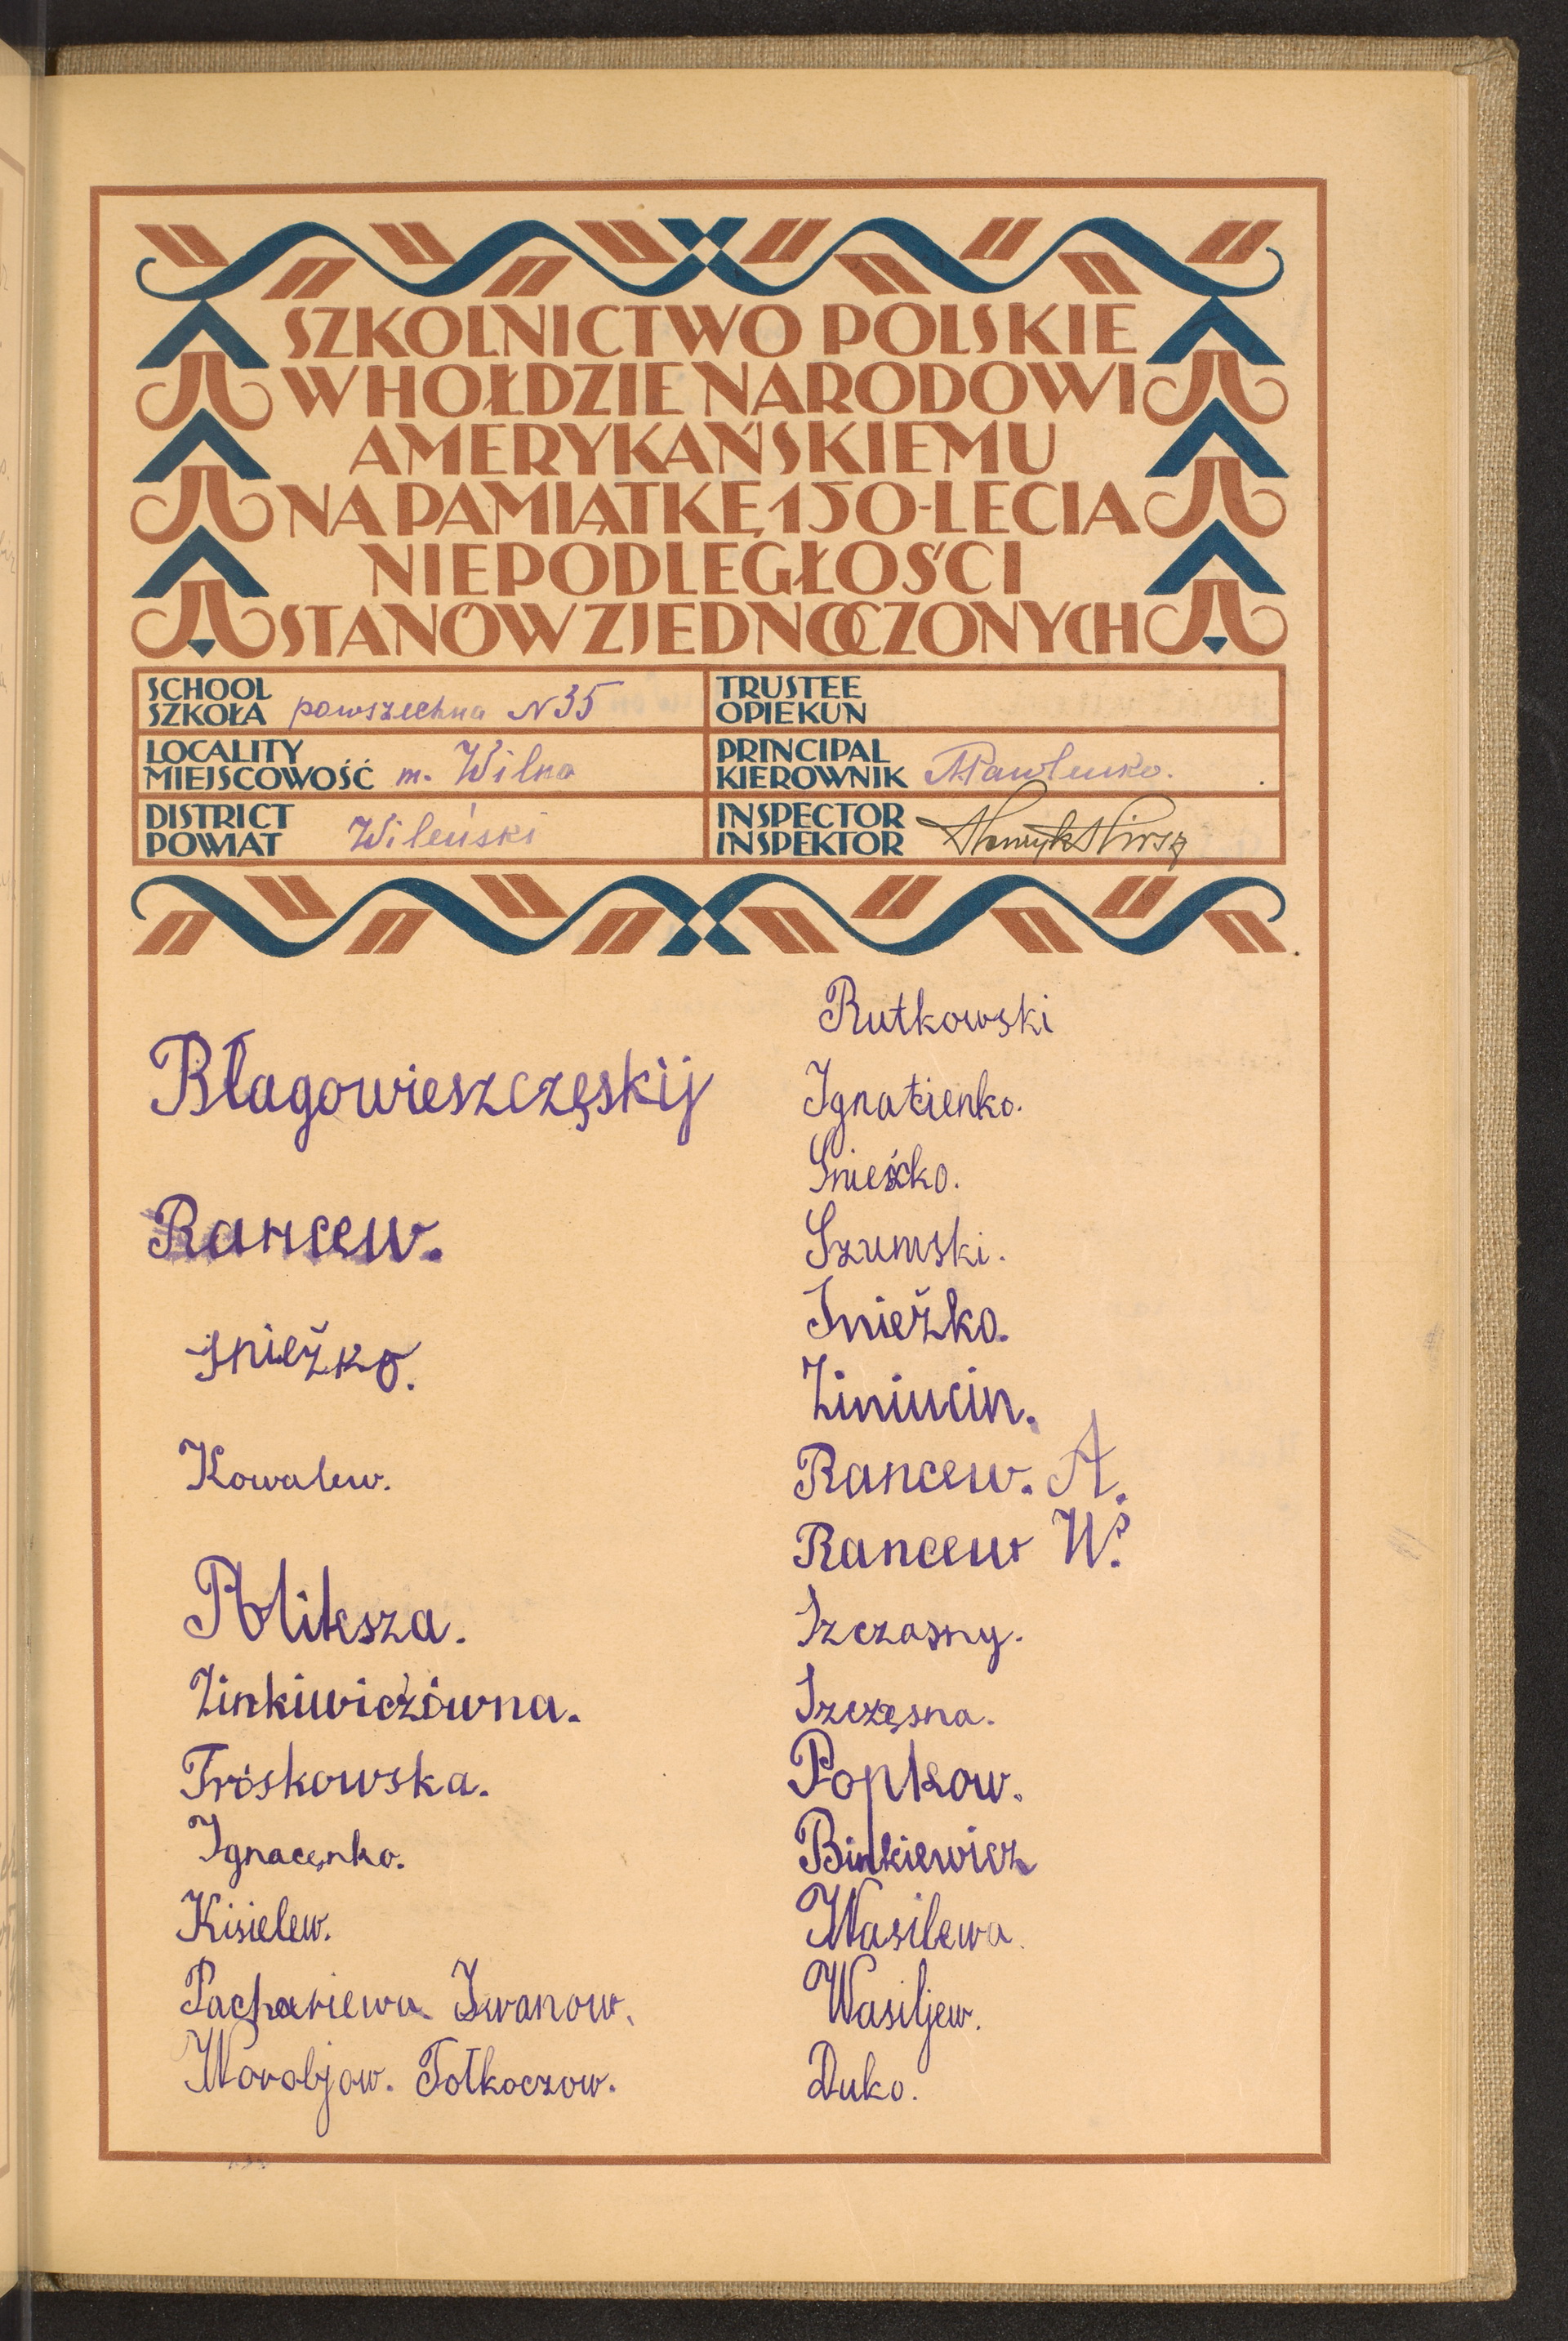 SZKOLNICTWO POLSKIE
W HOŁDZIE NARODOWI
AMERYKAŃSKIEMU
NA PAMIĄTKĘ 150-LECIA
NIEPODLEGŁOŚCI
STANÓW ZJEDNOCZONYCH
SCHOOL
SZKOŁA powszechna N 35
TRUSTEE
OPIEKUN
LOCALITY
MIEJSCOWOŚĆ m. Wilno
PRINCIPAL
KIEROWNIK APawlenko.
DISTRICT
POWIAT Wileński
INSPECTOR
INSPEKTOR Henryk
Błagowieszczęskij
Rancew.
Snieżko.
Kowalew.
Poliksza.
Zinkiwiczówna.
Troskowska.
Ignacenko.
Kisielew.
Pachariewa Iwanow.
Worobjow. Tołkoczow.
Rutkowski
Ignatienko.
Snieżko.
Szumski.
Snieżko.
Ziniucin.
Rancew. A.
Rancew W.
Szczasny.
Szczęsna.
Popkow.
Binkiewicz
Wasilewa.
Wasiljew.
Duko.